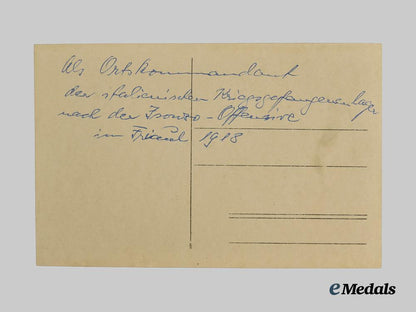 Als Ortskommandant
der italienischen Kriegsgefangenenlager
nach der Isonzo-Offensive
in Friaul 1918
eMedals